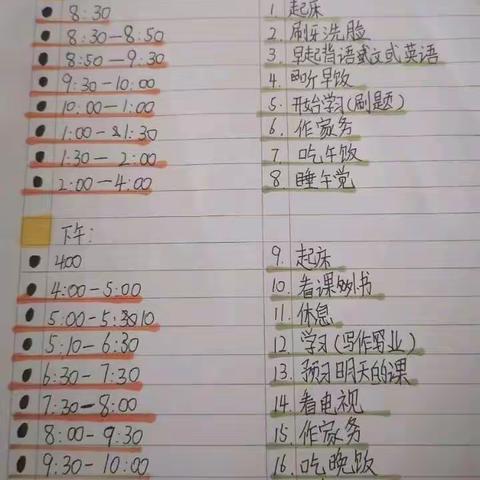 8:30 1. 起床
8:30-8:50 2. 刷牙洗脸
8:50-9:30 3. 早起背语文或英语
9:30-10:00 4. 吃早饭
10:00-1:00 5. 开始学习(刷题)
1:00-1:30 6. 作家务
1:30-2:00 7. 吃午饭
2:00-4:00 8. 睡午觉
下午:
400 9. 起床
4:00-5:00 10. 看课外书
5:00-5:10 11. 休息
5:10-6:30 12. 学习(写作业)
6:30-7:30 13. 预习明天的课
7:30-8:00 14. 看电视
8:00-9:30 15. 作家务
9:30-10:00 16. 吃晚饭